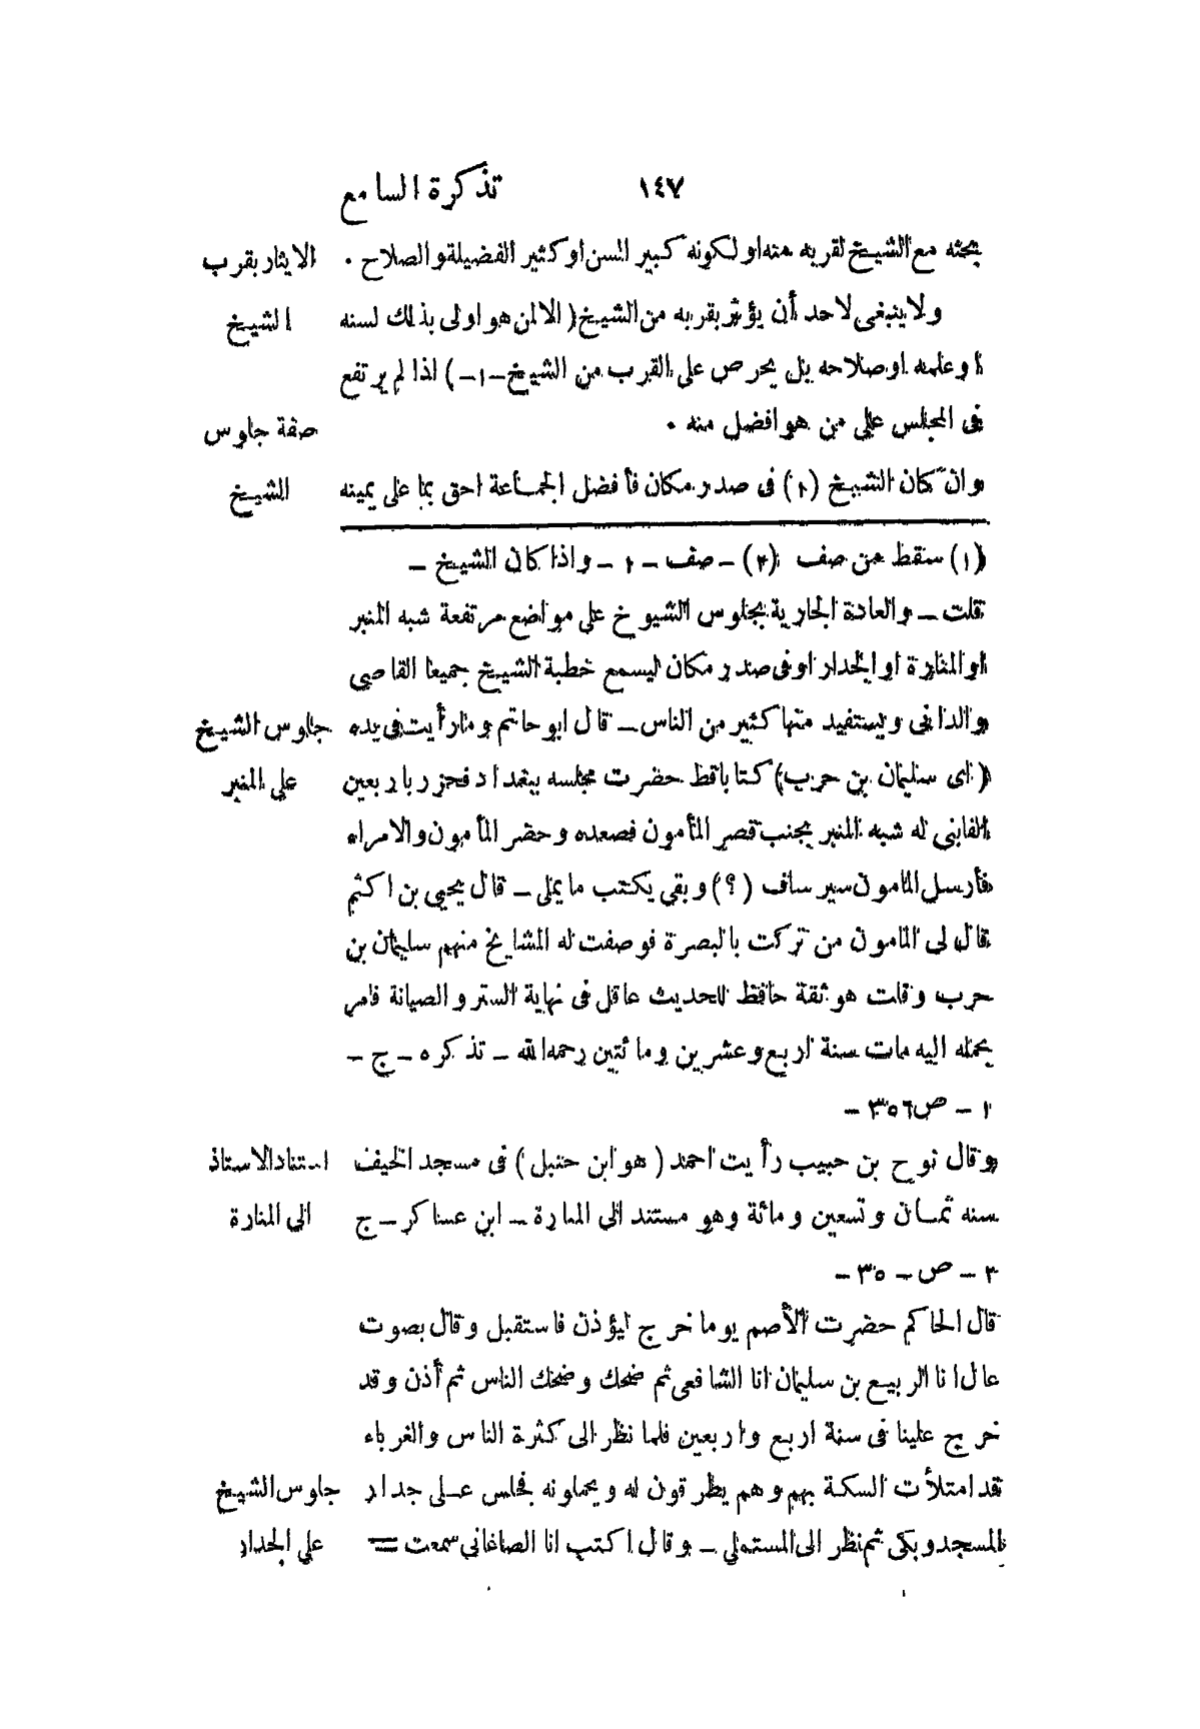 تذكرة السامع ١٤٧
بحثه مع الشيخ لقربه منه او لكونه كبير السن او كثير الفضيلة والصلاح . الايثار بقرب
ولا ينبغى لاحد أن يؤثر بقربه من الشيخ ( الا لمن هو اولى بذلك لسنه الشيخ
او علمه او صلاحه بل يحرص على القرب من الشيخ -١-) اذا لم يرتفع
فى المجلس على من هو افضل منه .
صفة جلوس
وان كان الشيخ (٢) فى صدر مكان فأفضل الجماعة احق بما على يمينه الشيخ
(١) سقط من صف (٢) – صف – ١ – واذا كان الشيخ –
قلت – والعادة الجارية بجلوس الشيوخ على مواضع مرتفعة شبه المنبر
او المنارة او الجدار او فى صدر مكان ليسمع خطبة الشيخ جميعا القاصى
والدانى ويستفيد منها كثير من الناس – قال ابو حاتم وما رأيت فى يده جلوس الشيخ
( اى سليمان بن حرب) كتابا قط حضرت مجلسه ببغداد فحزر باربعين على المنبر
الفا بنى له شبه المنبر بجنب قصر المأمون فصعده وحضر المأمون والامراء
فأرسل المامون سير ساف (؟) وبقى يكتب ما يملى – قال يحيى بن اكثم
قال لى المامون من تركت بالبصرة فوصفت له المشايخ منهم سليمان بن
حرب وقلت هو ثقة حافظ للحديث عاقل فى نهاية الستر والصيانة فامر
بحمله اليه مات سنة اربع وعشرين ومائتين رحمه الله – تذكره – ج –
١ – ص ٣٥٦ –
وقال نوح بن حبيب رأيت احمد ( هو ابن حنبل ) فى مسجد الخيف استناد الاستاذ
سنه ثمان وتسعين ومائة وهو مستند الى المنارة – ابن عساكر – ج الى المنارة
٢ – ص – ٣٥ –
قال الحاكم حضرت الأصم يوما خرج ليؤذن فاستقبل وقال بصوت
عال انا الربيع بن سليمان انا الشافعى ثم ضحك وضحك الناس ثم أذن وقد
خرج علينا فى سنة اربع واربعين فلما نظر الى كثرة الناس والغرباء
قد امتلأت السكة بهم وهم يطرقون له ويحملونه فجلس على جدار جلوس الشيخ
المسجد وبكى ثم نظر الى المستملى – وقال اكتب انا الصاغانى سمعت = على الجدار